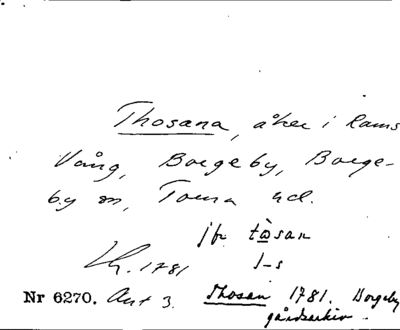 Thosana, åker i Rams
Vång, Borgeby, Borge-
by sn, Torna hd.
jfr tåsan
1781 l-s
Nr 6270. Ant 3. Thosan 1781. Borgeby
gårdsarkiv.